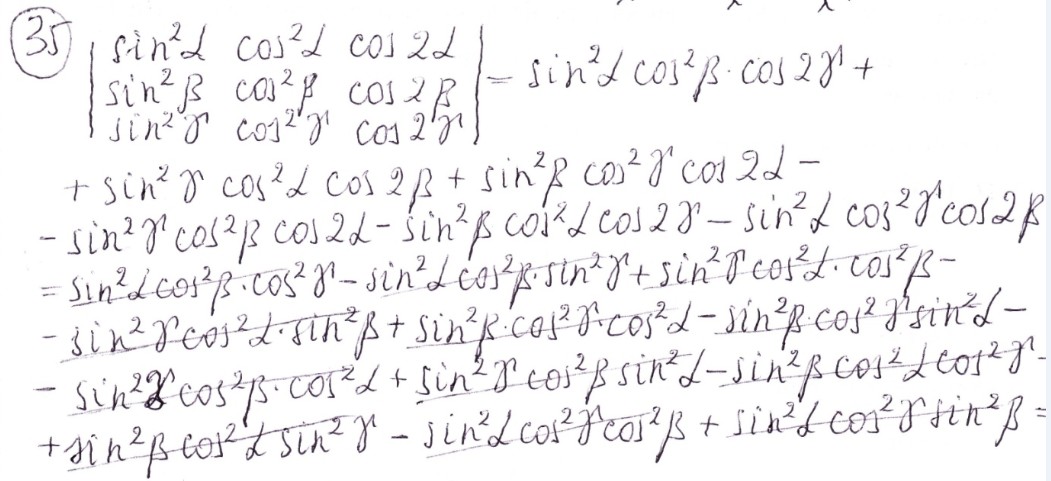 35 | sin²α cos²α cos 2α |
| sin²β cos²β cos 2β | = sin²α cos²β · cos 2γ +
| sin²γ cos²γ cos 2γ |
+ sin²γ cos²α cos 2β + sin²β cos²γ cos 2α −
− sin²γ cos²β cos 2α − sin²β cos²α cos 2γ − sin²α cos²γ cos 2β
= sin²α cos²β · cos²γ − sin²α cos²β · sin²γ + sin²γ cos²α · cos²β −
− sin²γ cos²α · sin²β + sin²β · cos²γ · cos²α − sin²β · cos²γ sin²α −
− sin²γ cos²β · cos²α + sin²γ cos²β sin²α − sin²β cos²α cos²γ −
+ sin²β cos²α sin²γ − sin²α cos²γ cos²β + sin²α cos²γ sin²β =